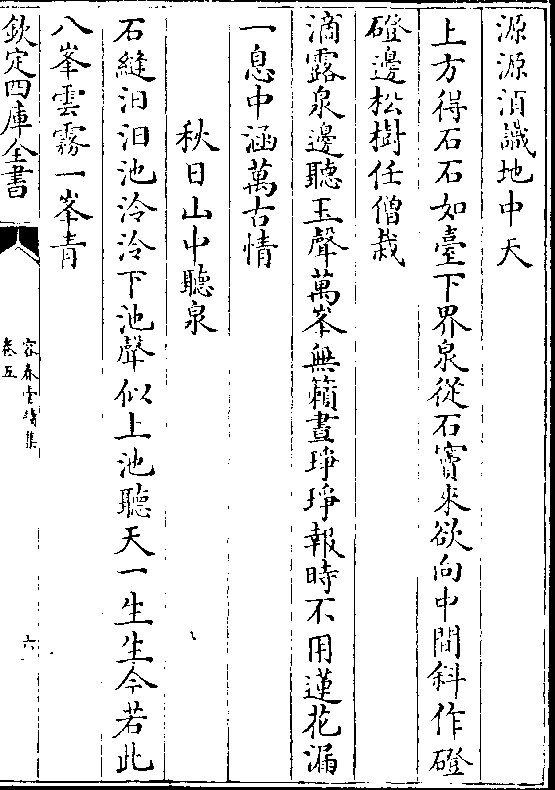 源源湏識地中天
上方得石石如臺下界泉從石竇來欲向中間斜作磴
磴邊松樹任僧栽
滴露泉邊聽玉聲萬峯無籟晝琤琤報時不用蓮花漏
一息中涵萬古情
秋日山中聽泉
石縫汩汩池泠泠下池聲似上池聽天一生生今若此
八峯雲霧一峯青
欽定四庫全書
容春堂續集
卷五
六